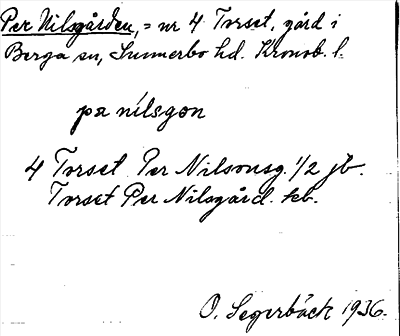 Per Nilsgården, = nr 4 Torset, gård i
Berga sn, Sunnerbo hd. Kronob. l.
pæ nilsgon
4 Torset Per Nilsonsg. 1/2 jb.
Torset Per Nilsgård. kb.
O. Segerbäck 1936.